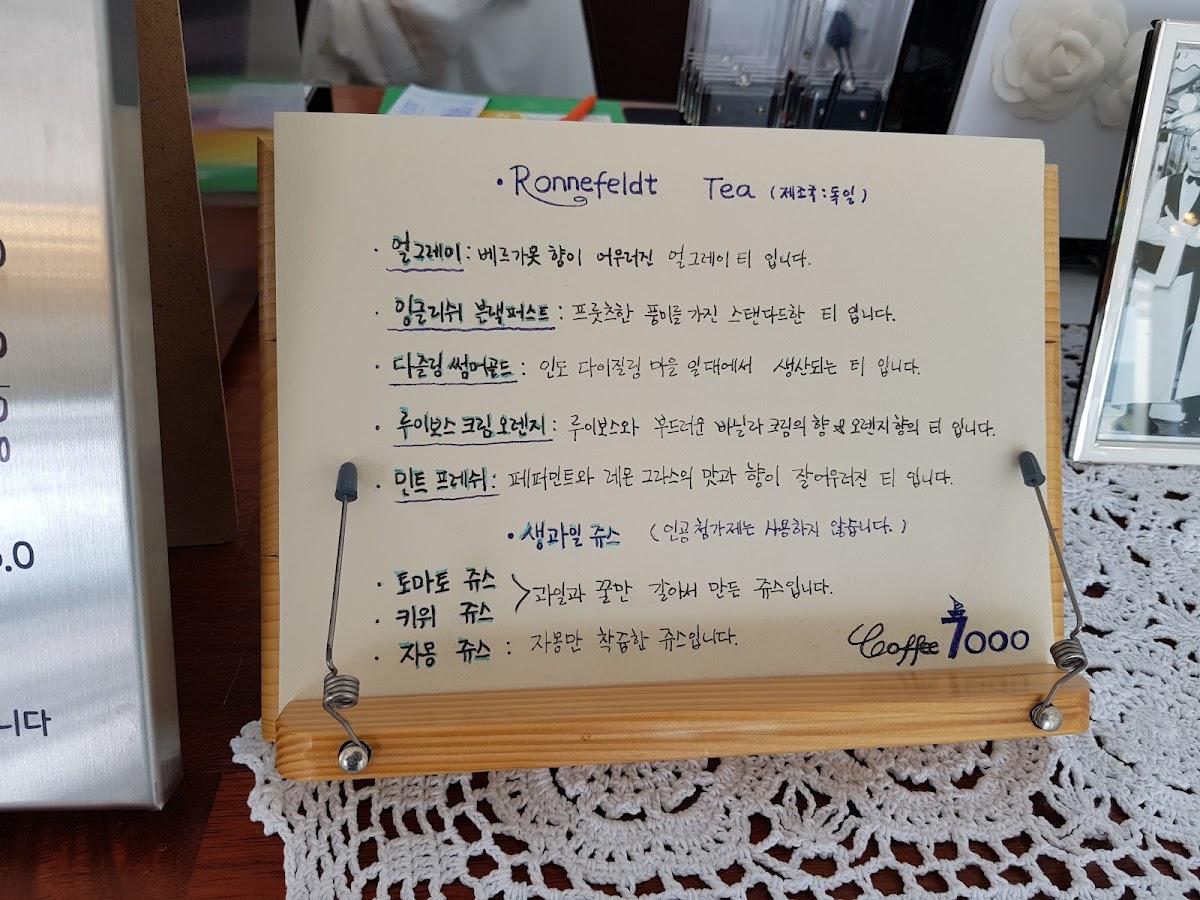 • Ronnefeldt Tea (제조국:독일)
· 얼그레이 : 베르가못 향이 어우러진 얼그레이 티 입니다.
· 잉글리쉬 블랙퍼스트 : 프룻츠한 풍미를 가진 스탠다드한 티 입니다.
· 다즐링 썸머골드 : 인도 다이질링 마을 일대에서 생산되는 티 입니다.
· 루이보스 크림 오렌지 : 루이보스와 부드러운 바닐라 크림의 향 & 오렌지향의 티 입니다.
· 민트 프레쉬 : 페퍼민트와 레몬 그라스의 맛과 향이 잘어우러진 티 입니다.
• 생과일 쥬스 (인공첨가제는 사용하지 않습니다.)
· 토마토 쥬스
· 키위 쥬스 > 과일과 꿀만 갈아서 만든 쥬스입니다.
· 자몽 쥬스 : 자몽만 착즙한 쥬스입니다.
Coffee 7000
.0
니다